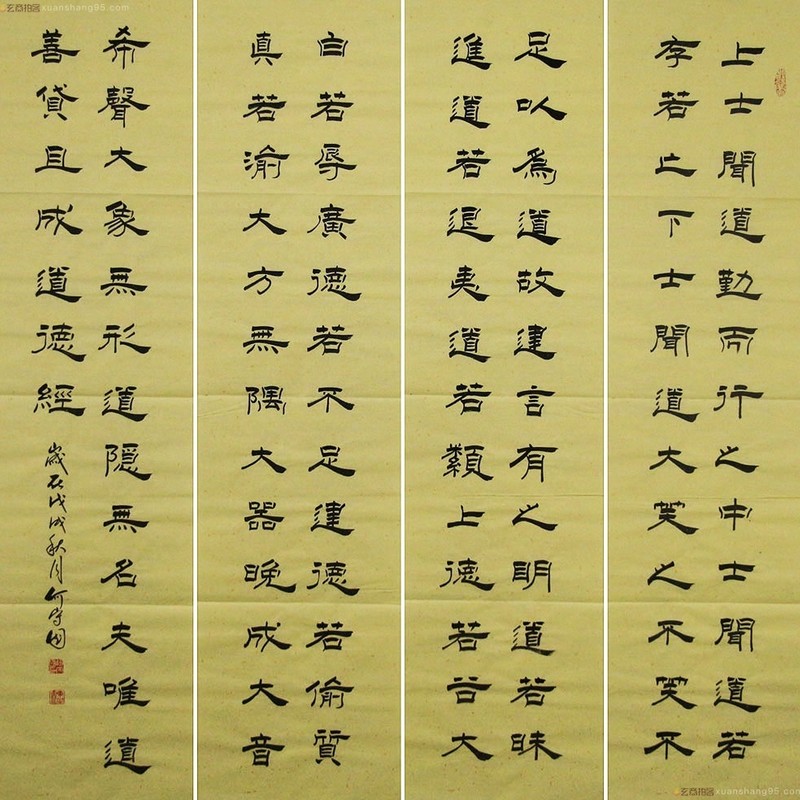 上士聞道勤而行之中士聞道若
存若亡下士聞道大笑之不笑不
足以為道故建言有之明道若昧
進道若退夷道若纇上德若谷大
白若辱廣德若不足建德若偷質
真若渝大方無隅大器晚成大音
希聲大象無形道隱無名夫唯道
善貸且成道德經
歲在戊戌秋月何守
玄商拍客xuanshang95.com
玄商拍客xuanshang95.com